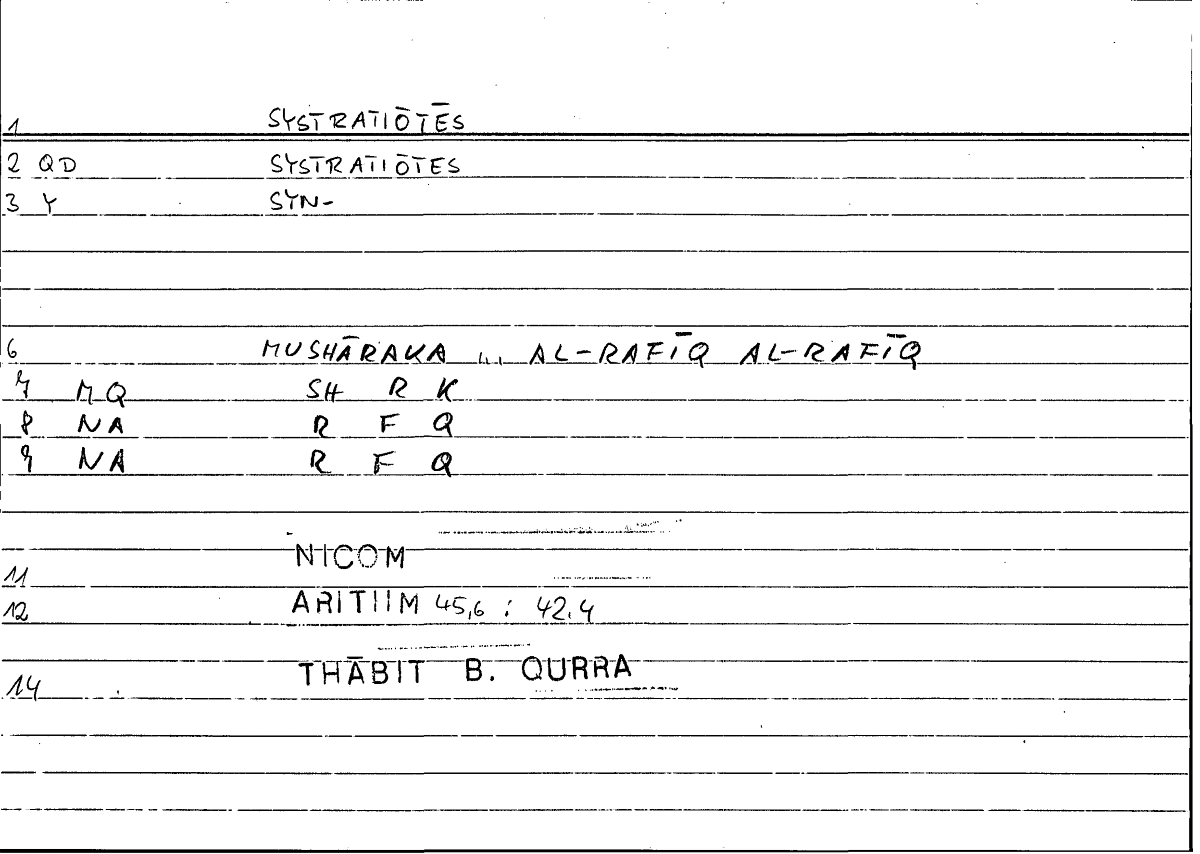 1 SYSTRATIŌTĒS
2 QD SYSTRATIŌTES
3 Y SYN-
6 MUSHĀRAKA ... AL-RAFĪQ AL-RAFĪQ
7 MQ SH R K
8 NA R F Q
9 NA R F Q
11 NICOM
12 ARITIIM 45,6 : 42.4
14 THĀBIT B. QURRA